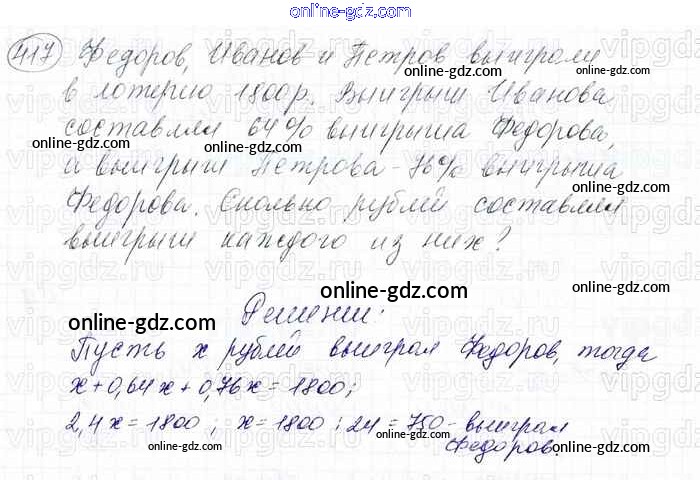 online-gdz.com
417 Федоров, Иванов и Петров выиграли
в лотерею 1800р. Выигрыш Иванова
составлял 64% выигрыша Федорова,
а выигрыш Петрова - 76% выигрыша
Федорова. Сколько рублей составлял
выигрыш каждого из них?
Решение:
Пусть x рублей выиграл Федоров, тогда
x + 0,64x + 0,76x = 1800;
2,4x = 1800 ; x = 1800 : 24 = 750 - выиграл
Федоров.
online-gdz.com
online-gdz.com
online-gdz.com
online-gdz.com
online-gdz.com
online-gdz.com
online-gdz.com
online-gdz.com
online-gdz.com
online-gdz.com
online-gdz.com